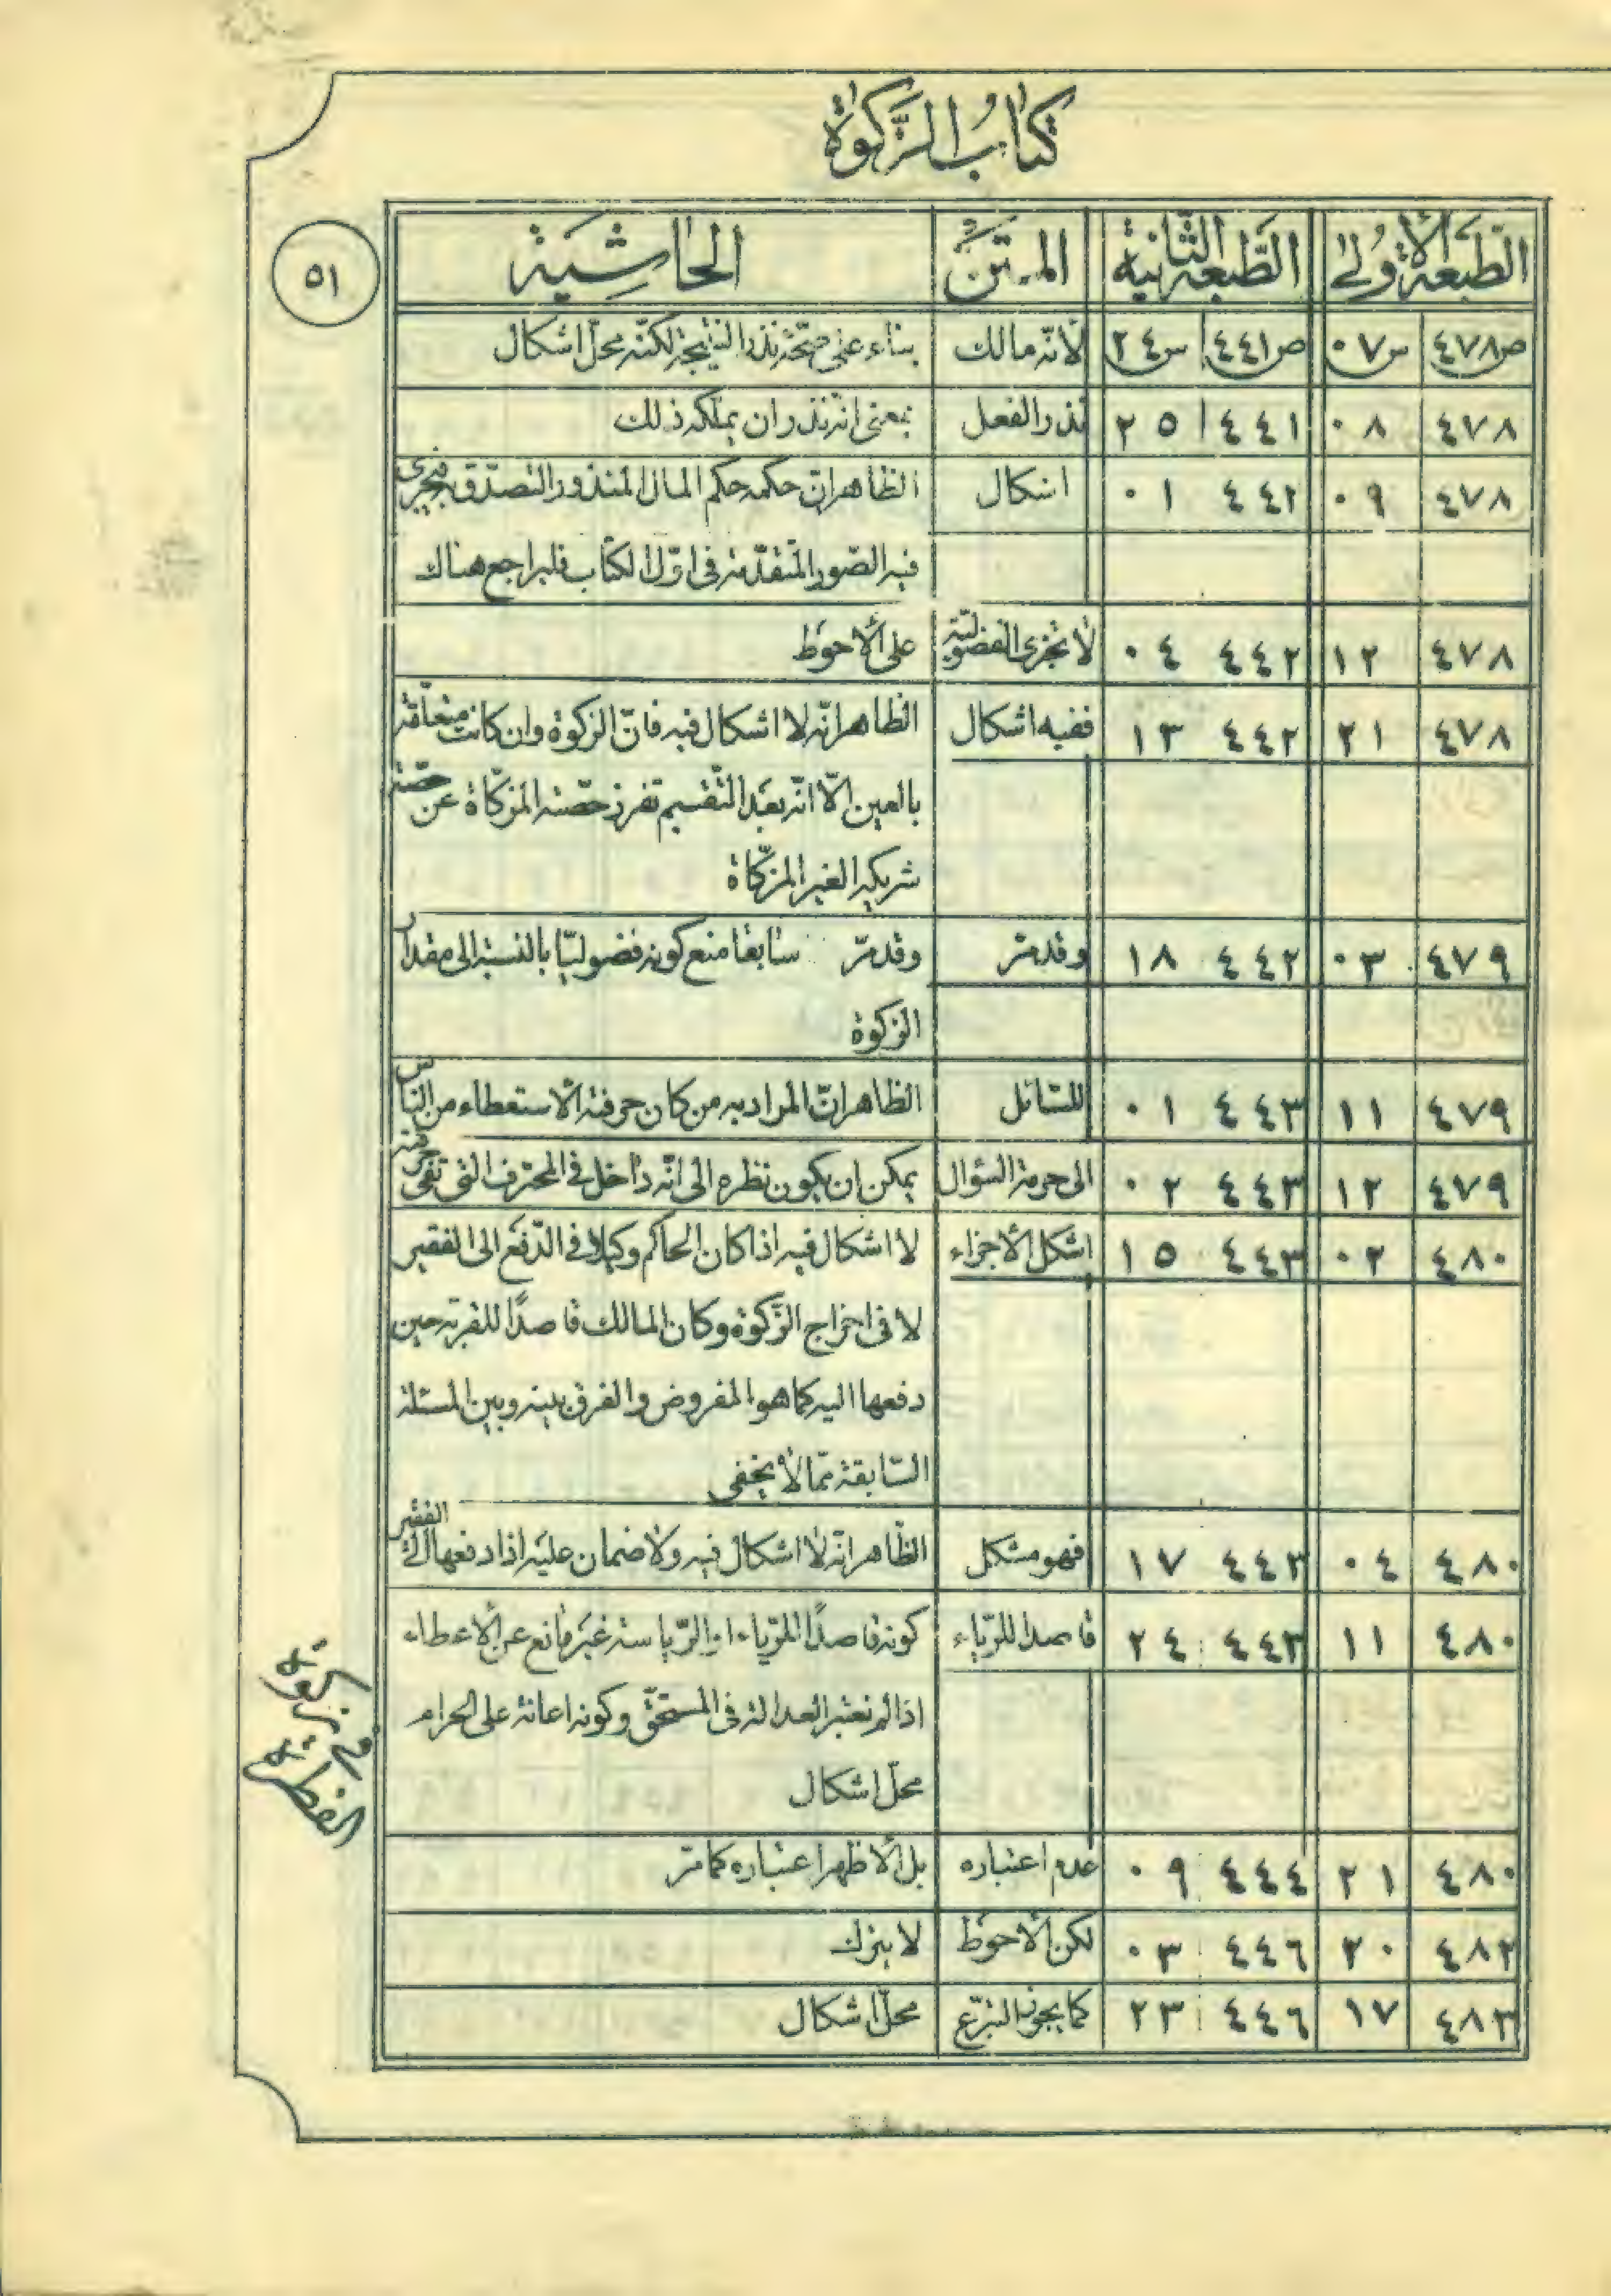 كتاب الزكوة
الطبعة الأولى الطبعة الثانية المتن الحاشية
٥١
ص٤٧٨ س٠٧ ص٤٤١ س٢٤ لأنه مالك بناء على صحة نذر النتيجة لكنه محل اشكال
٤٧٨ ٠٨ ٤٤١ ٢٥ نذر الفعل بمعنى انه نذر ان يملكه ذلك
٤٧٨ ٠٩ ٤٤٢ ٠١ اشكال الظاهر ان حكمه حكم المال المنذور التصدق به فيجرى
فيه الصور المتقدمة فى اول الكتاب فليراجع هناك
٤٧٨ ١٢ ٤٤٢ ٠٤ لا تجزى الفضولية على الأحوط
٤٧٨ ٢١ ٤٤٢ ١٣ ففيه اشكال الظاهر انه لا اشكال فيه فان الزكوة وان كانت متعلقة
بالعين الّا انه بعد التقسيم تفرز حصته المزكّاة عن حصة
شريكه الغير المزكّاة
٤٧٩ ٠٣ ٤٤٢ ١٨ وقد مرّ وقد مرّ سابقا منع كونه فضوليّا بالنسبة الى مقدار
الزكوة
٤٧٩ ١١ ٤٤٣ ٠١ للسّائل الظاهر انّ المراد به من كان حرفته الأستعطاء من الناس
٤٧٩ ١٢ ٤٤٣ ٠٢ الى حرمة السؤال يمكن ان يكون نظره الى انّه داخل فى المحترف التى تفى حرفته
٤٨٠ ٠٢ ٤٤٣ ١٥ اشكل الأجزاء لا اشكال فيه اذا كان الحاكم وكيلا فى الدّفع الى الفقير
لا فى اخراج الزّكوة وكان المالك قاصدًا للقربة حين
دفعها اليه كما هو المفروض والفرق بينه وبين المسئلة
السّابقة ممّا لا يخفى
٤٨٠ ٠٤ ٤٤٣ ١٧ فهو مشكل الظّاهر انّه لا اشكال فيه ولا ضمان عليه اذا دفعها الى الفقير
٤٨٠ ١١ ٤٤٣ ٢٤ قاصدا للرّياء كونه قاصدًا للرّياء او الرّياسة غير مانع عن الأعطاء
اذا لم نعتبر العدالة فى المستحقّ وكونه اعانة على الحرام
محلّ اشكال
٤٨٠ ٢١ ٤٤٤ ٠٩ عدم اعتباره بل الأظهر اعتباره كما مرّ
٤٨٢ ٢٠ ٤٤٦ ٠٣ لكن الأحوط لا يترك
٤٨٣ ١٧ ٤٤٦ ٢٣ كما يجوز التبرّع محلّ اشكال
فى زكوة
الفطرة